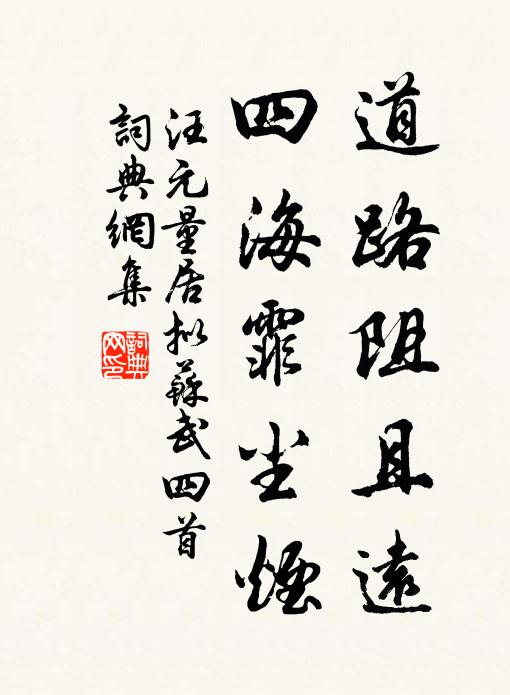 道路阻且遠
四海霏尘煙
汪元量居拟蘇武四首
詞典網集
詞典网印